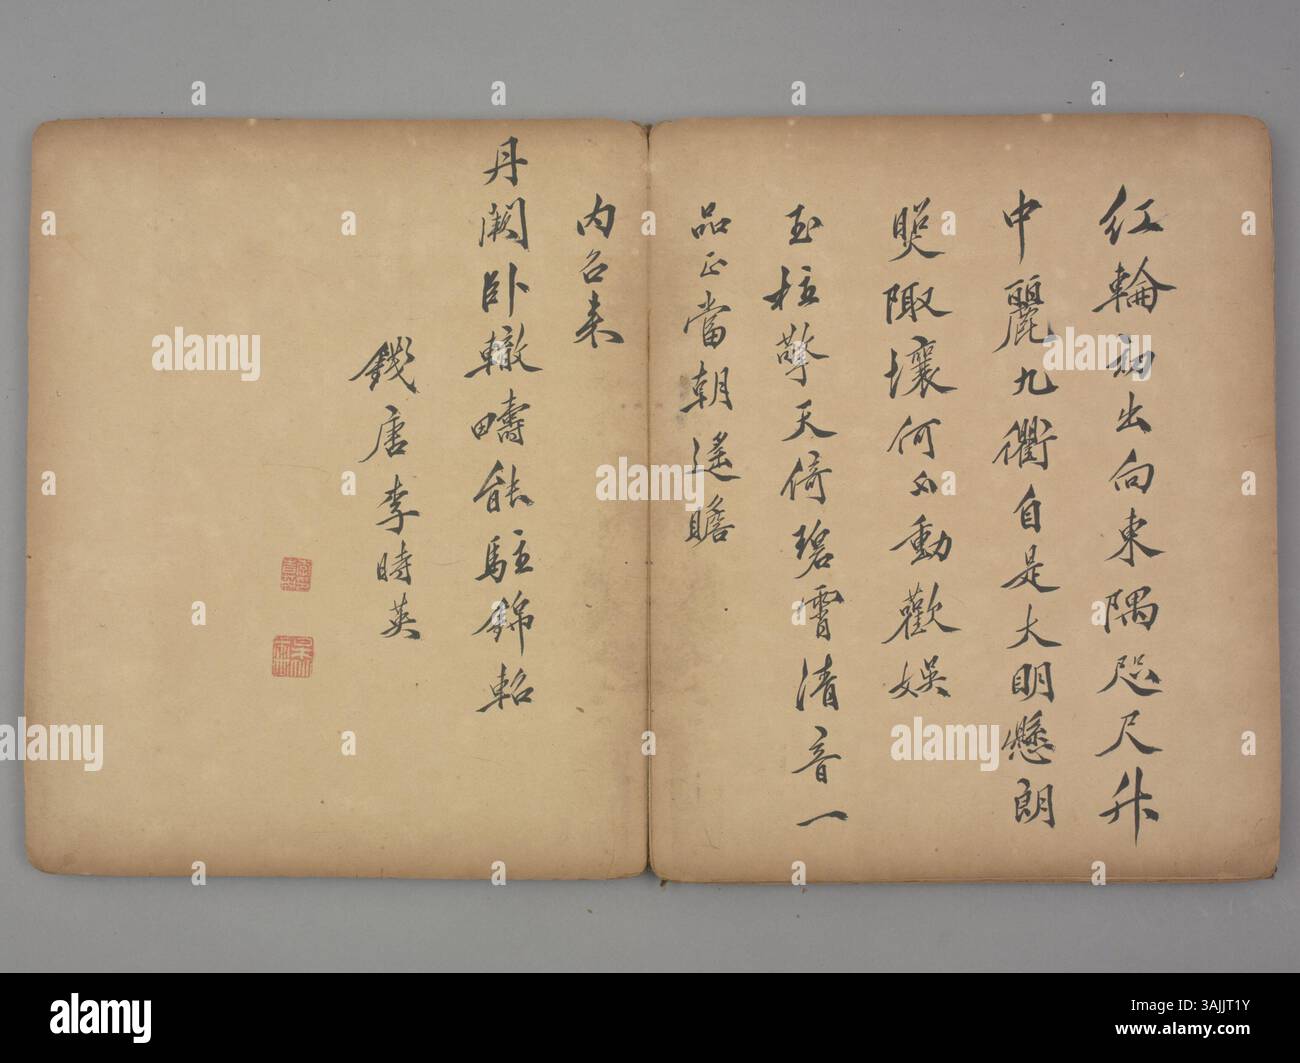 紅輪初出向東隅咫尺升
中麗九衢自是大明懸朗
照陬壤何不動歡娛
玉柱擎天倚碧霄清音一
品正當朝遙瞻
內召來
丹闕臥轍疇能駐錦軺
錢唐李時英
alamy
Image ID: 3AJJT1Y
www.alamy.com